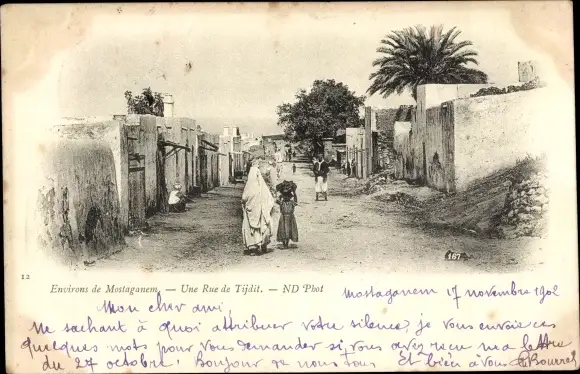 167
12
Environs de Mostaganem. — Une Rue de Tijdit. — ND Phot
Mostaganem 17 novembre 1902
Mon cher ami,
Ne sachant à quoi attribuer votre silence, je vous envoie ces
quelques mots pour vous demander si vous avez reçu ma lettre
du 27 octobre. Bonjour de nous tous Et bien à vous